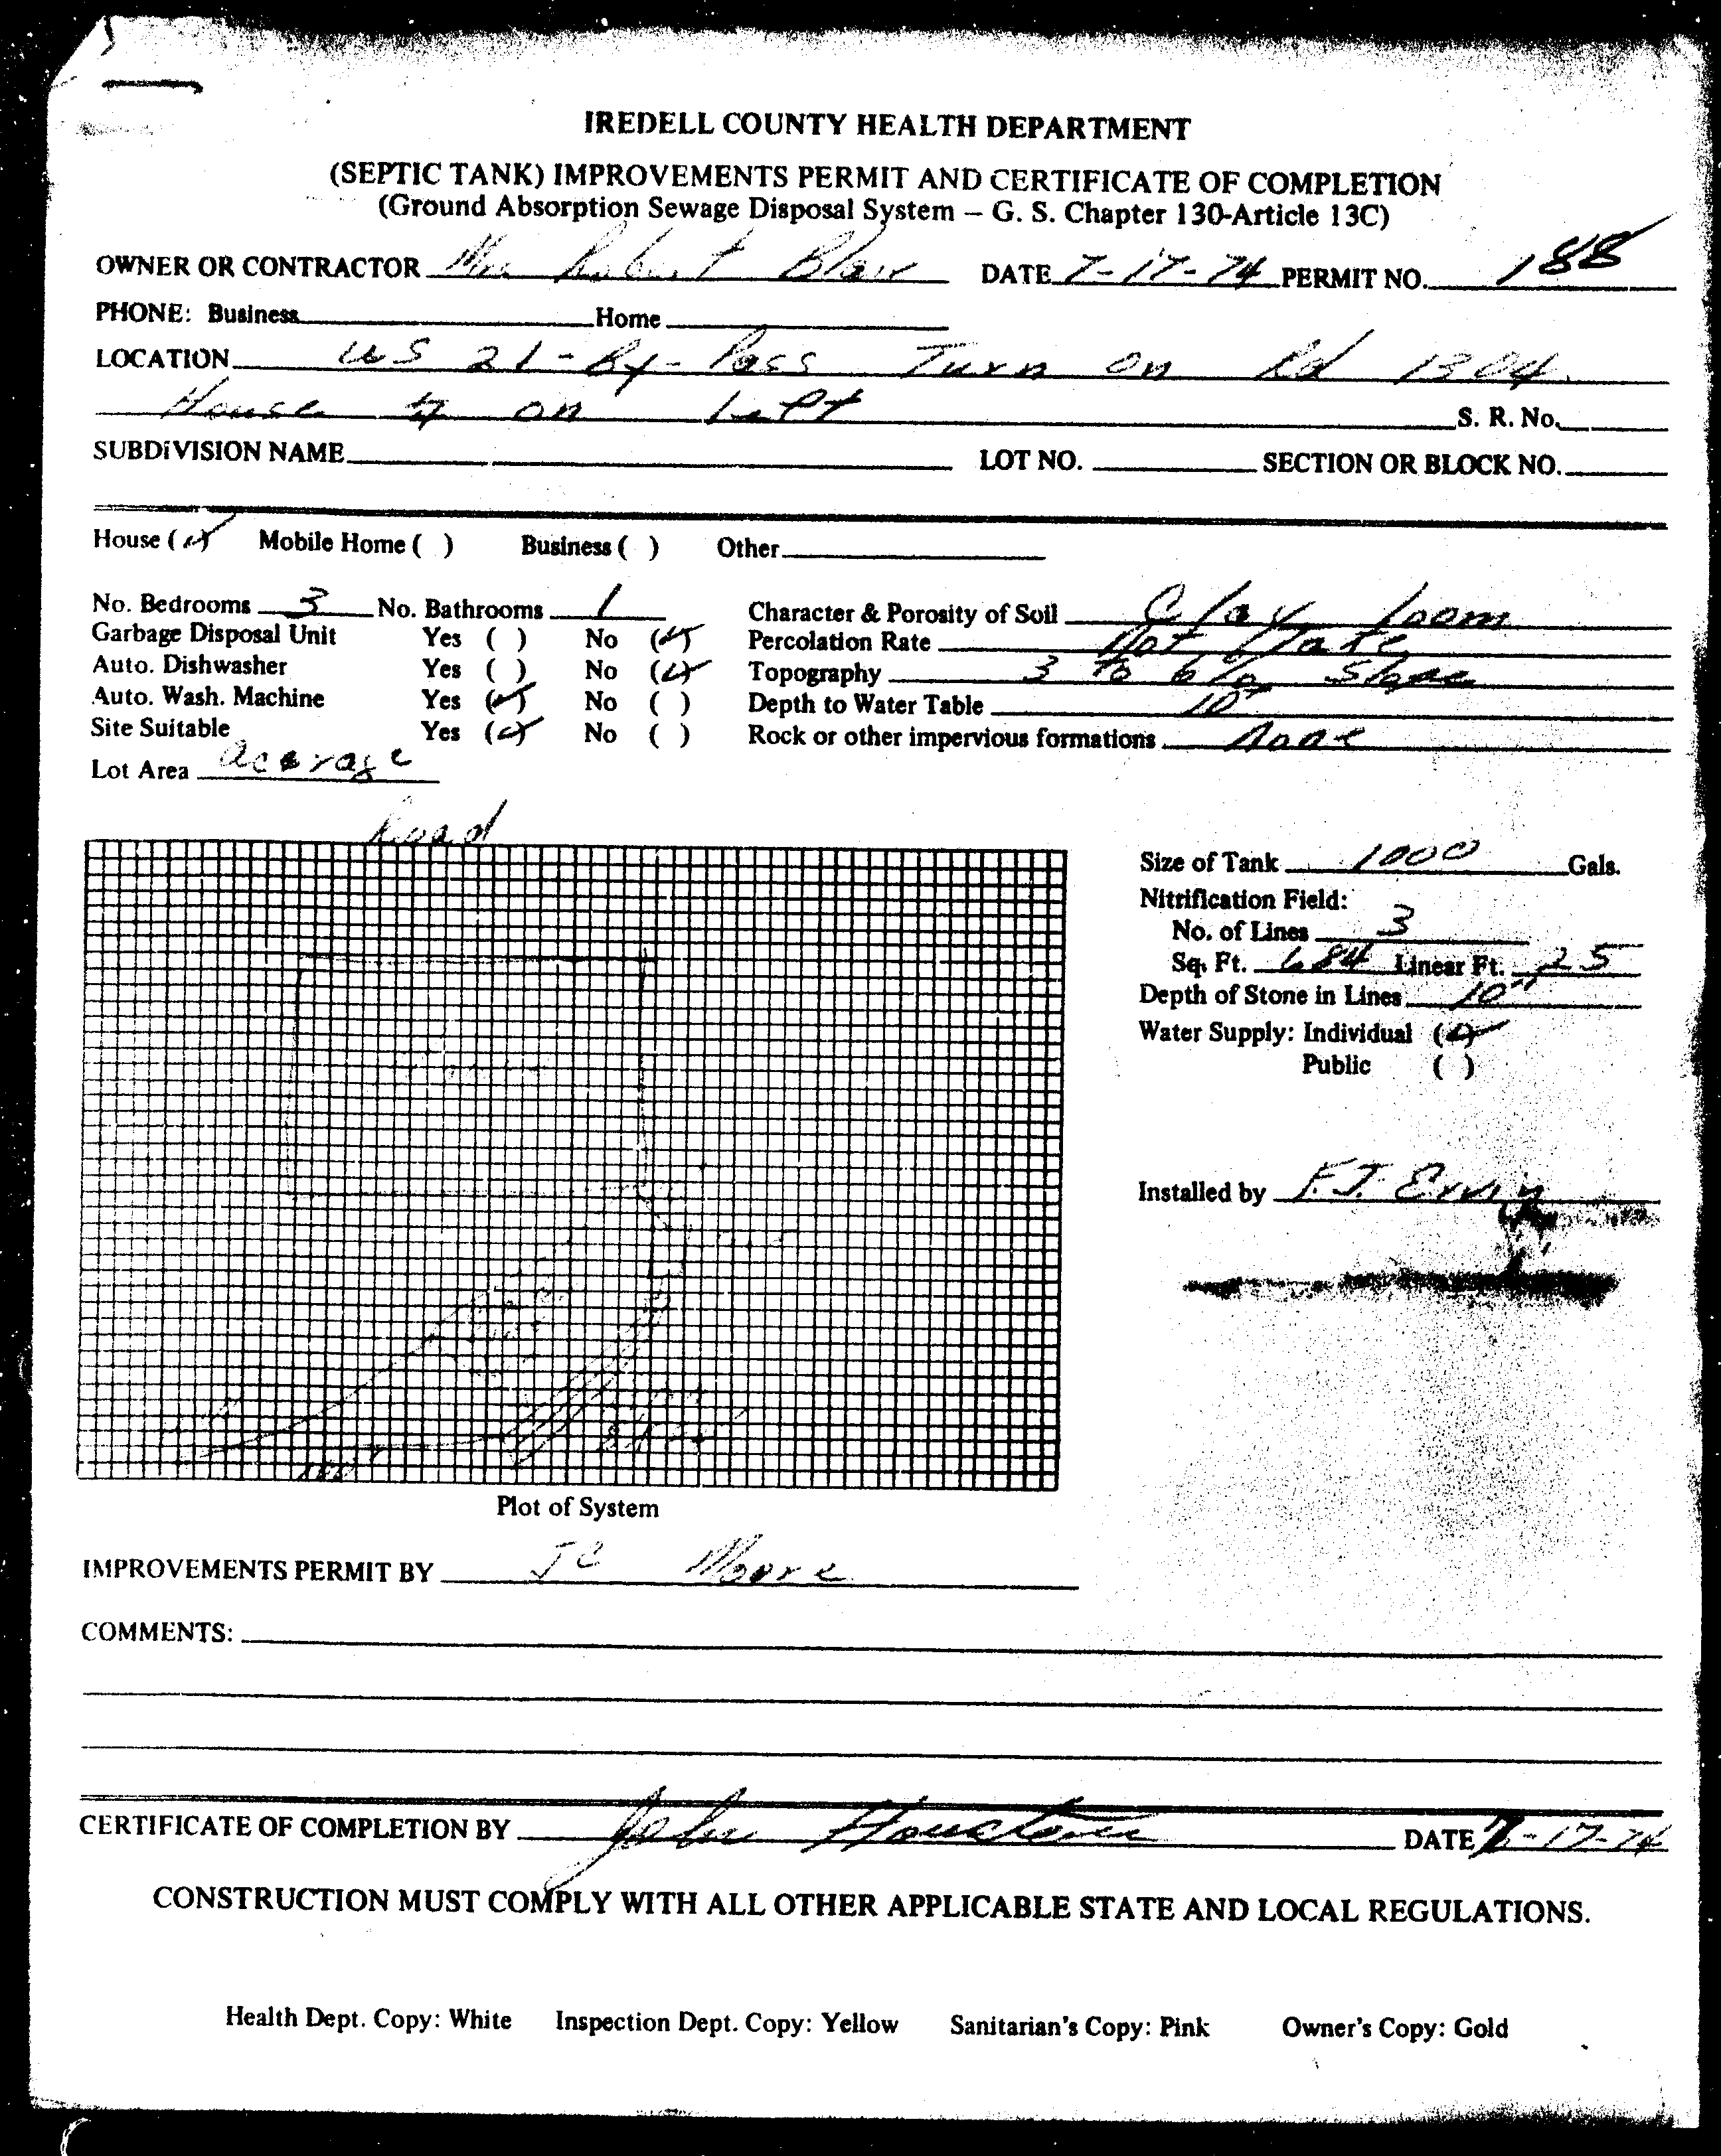 IREDELL COUNTY HEALTH DEPARTMENT
(SEPTIC TANK) IMPROVEMENTS PERMIT AND CERTIFICATE OF COMPLETION
(Ground Absorption Sewage Disposal System – G. S. Chapter 130-Article 13C)
OWNER OR CONTRACTOR Robert Blair DATE 7-17-74 PERMIT NO. 188
PHONE: Business Home
LOCATION US 21-By-Pass Turn on Rd 1304
House on Left S. R. No.
SUBDIVISION NAME LOT NO. SECTION OR BLOCK NO.
House (✓) Mobile Home ( ) Business ( ) Other
No. Bedrooms 3 No. Bathrooms 1 Character & Porosity of Soil Clay loom
Garbage Disposal Unit Yes ( ) No (✓) Percolation Rate Not Take
Auto. Dishwasher Yes ( ) No (✓) Topography 3 to 6% Slope
Auto. Wash. Machine Yes (✓) No ( ) Depth to Water Table 10'
Site Suitable Yes (✓) No ( ) Rock or other impervious formations None
Lot Area
Road
Size of Tank 1000 Gals.
Nitrification Field:
No. of Lines 3
Sq. Ft. 684 Linear Ft. 25
Depth of Stone in Lines 10"
Water Supply: Individual (✓)
Public ( )
Installed by F.J. Ervin
Plot of System
IMPROVEMENTS PERMIT BY JC Moore
COMMENTS:
CERTIFICATE OF COMPLETION BY John Houston DATE 7-17-74
CONSTRUCTION MUST COMPLY WITH ALL OTHER APPLICABLE STATE AND LOCAL REGULATIONS.
Health Dept. Copy: White Inspection Dept. Copy: Yellow Sanitarian's Copy: Pink Owner's Copy: Gold